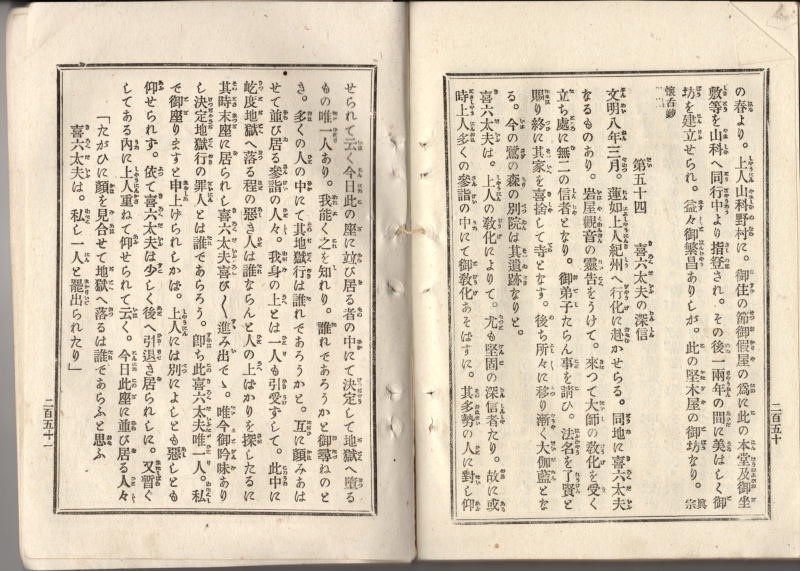 の春より。上人山科野村に。御住の節御假屋の爲に此の本堂及御坐
敷等を山科へ同行中より指登され。その後一兩年の間に美はしく御
坊を建立せられ。益々御繁昌ありしが。此の堅木屋の御坊なり。眞宗
懷古鈔
第五十四 喜六太夫の深信
文明八年三月。蓮如上人紀州へ行化に赴かせらる。同地に喜六太夫
なるものあり。岩屋觀音の靈告をうけて。來つて大師の敎化を受く
立ち處に無二の信者となり。御弟子たらん事を請ひ。法名を了賢と
賜り終に其家を喜捨して寺となす。後ち所々に移り漸く大伽藍とな
る。今の鷺の森の別院は其遺跡なりと。
喜六太夫は。上人の敎化によりて。尤も堅固の深信者たり。故に或
時上人多くの參詣の中にて御敎化あそばすに。其多勢の人に對し仰
二百五十
せられて云く今日此の座に竝び居る者の中にて決定して地獄へ墮る
もの唯一人あり。我能く之を知れり。誰れであろうかと御尋ねのと
き。多くの人の中にて其地獄行は誰れであろうかと。互に顏みあは
せて並び居る參詣の人々。我身の上とは一人も引受ずして。此中に
屹度地獄へ落る程の惡き人は誰ならんと人の上ばかりを探したるに
其時末座に居られし喜六太夫喜び〱進み出でゝ。唯今御吟味あり
し決定地獄行の罪人とは誰であらろう。卽ち此喜六太夫唯一人。私
で御座りますと申上けられしかば。上人には別によしとも惡しとも
仰せられず。依て喜六太夫は少しく後へ引退き居られしに。又暫ぐ
してある內に上人重ねて仰せられて云く。今日此座に並び居る人々
「たがひに顏を見合せて地獄へ落るは誰であらふと思ふ
喜六太夫は。私し一人と罷出られたり」
二百五十一